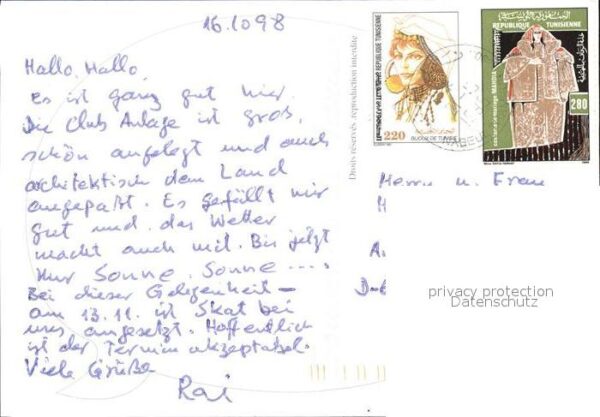 16.1098
Hallo, Hallo,
Es ist ganz gut hier.
Die Club Anlage ist groß,
schön angelegt und auch
architektisch dem Land
angepaßt. Es gefällt mir
gut und das Wetter
macht auch mit. Bis jetzt
Nur Sonne, Sonne ....
Bei dieser Gelegenheit –
am 13.11. ist Skat bei
uns angesetzt. Hoffentlich
ist der Termin akzeptabel.
Viele Grüße
Rai
Droits réservés, reproduction interdite
REPUBLIQUE TUNISIENNE
220
BIJOUX DE TUNISIE
REPUBLIQUE TUNISIENNE
الجمهورية التونسية
MAHDIA
280
NABEUL
Herrn u. Frau
H
A
D-
privacy protection
Datenschutz